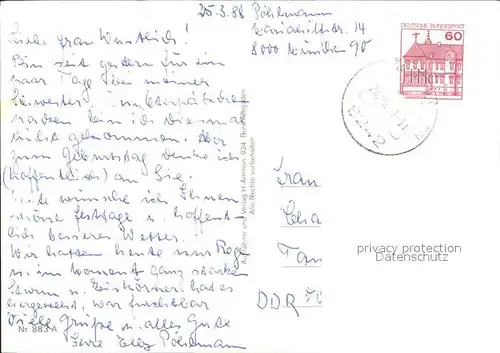 25.3.88 Pöhlmann
Mariahilfstr. 14
8000 München 90
Liebe Frau Wünstich!
Bin seit gestern für ein
paar Tage bei meiner
Schwester in
haben bin ich diesmal
nicht gekommen. Aber
zum Geburtstag denke ich
(hoffentlich) an Sie.
wünsche ich Ihnen
schöne Festtage u. hoffent-
lich besseres Wetter.
Wir hatten heute nur Regen
u. im Moment ganz starken
Sturm u. Eiskörner hat es
hergeweht, war furchtbar
Viele Grüße u. alles Gute
Ihre Elly Pöhlmann
Nr. 883 A
Aufnahme und Verlag H. Ammon, 824 Berchtesgaden
Alle Rechte vorbehalten
DEUTSCHE BUNDESPOST
60
Frau
Tan
DDR
privacy protection
Datenschutz